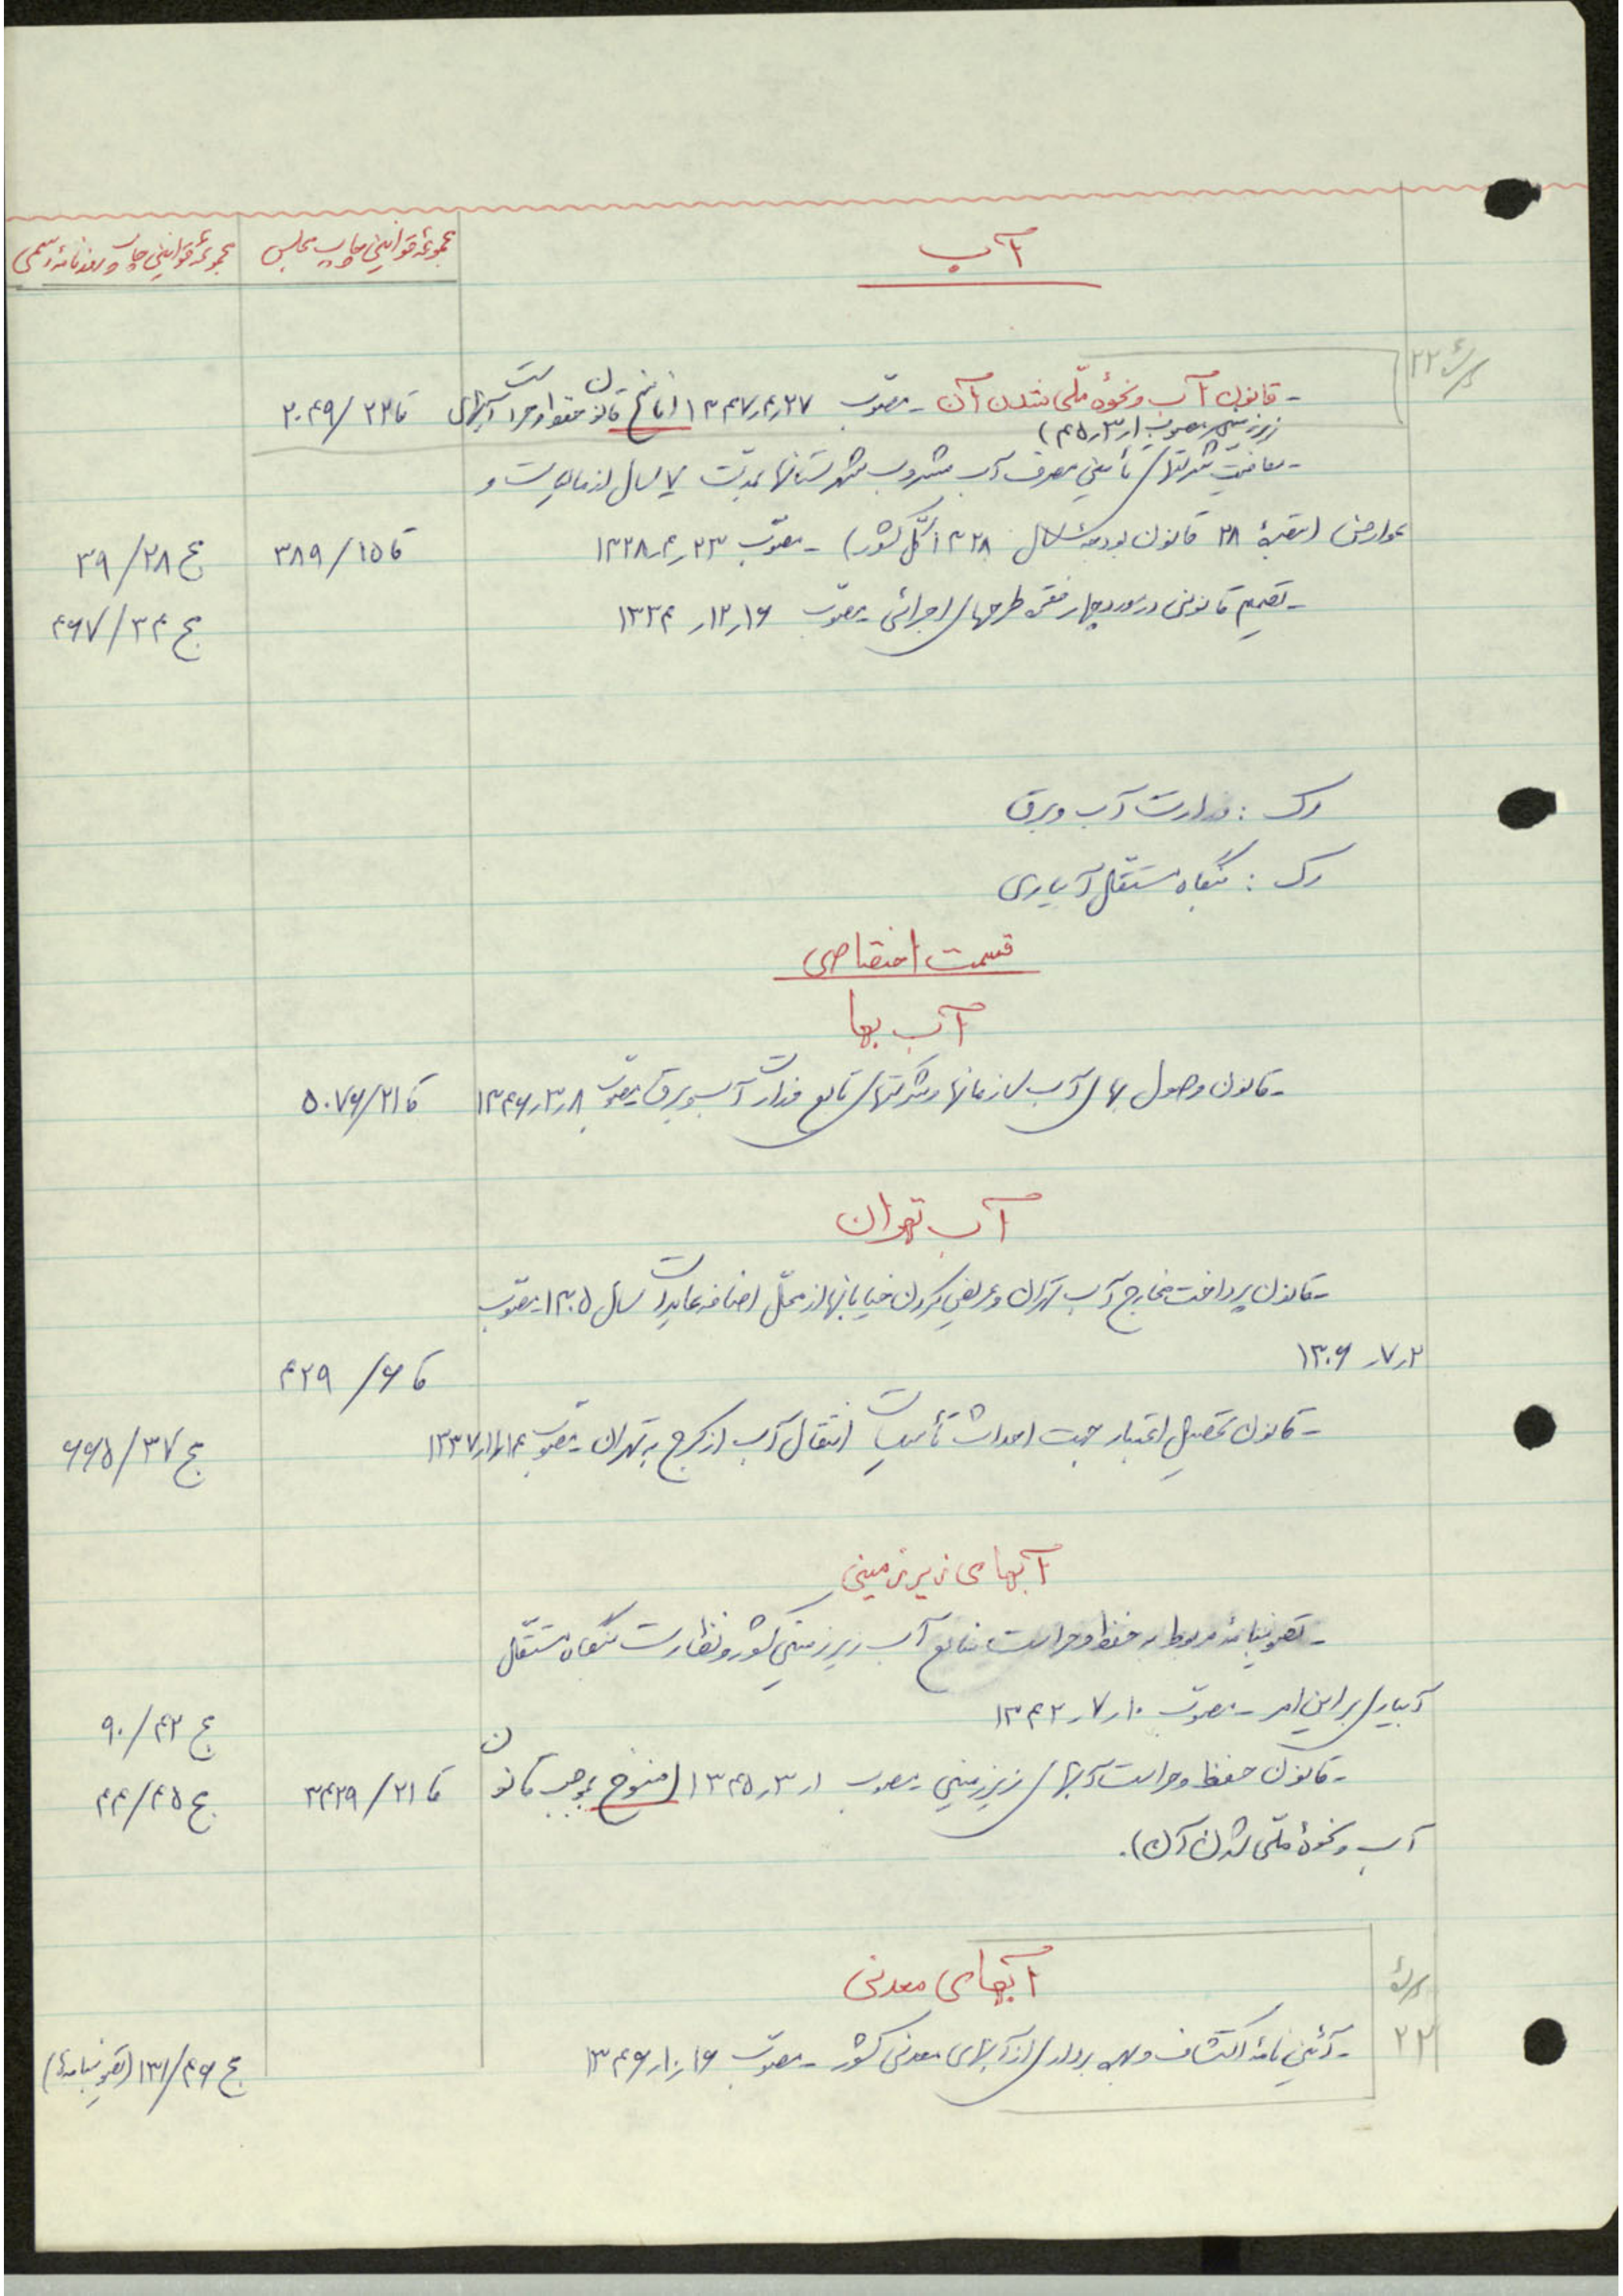 آب
مجموعهٔ قوانین چاپ مجلس
مجموعهٔ قوانین چاپ روزنامهٔ رسمی
- قانون آب و نحوهٔ ملّی شدن آن - مصوّب ۱۳۴۷٫۴٫۲۷ (ناسخ قانون حفظ و حراست آبهای ق ۲۲/۲۰۴۹
زیرزمینی مصوب ۴۵٫۳٫۱)
- معافیت شرکتهای تأمین مصرف آب مشروب شهرستانها بمدّت ۷ سال از مالیات و
عوارض (تبصرهٔ ۲۸ قانون بودجهٔ سال ۱۳۲۸ کل کشور) - مصوّب ۱۳۲۸٫۴٫۲۳ ق ۱۵/۳۸۹ ج ۲۸/۳۹
- تصمیم قانونی در مورد چهار فقره طرحهای اجرائی - مصوّب ۱۳۳۴٫۱۲٫۱۶ ج ۳۴/۴۶۷
رک : وزارت آب و برق
رک : بنگاه مستقل آبیاری
قسمت اختصاصی
آب بها
- قانون وصول بهای آب سازمانها و شرکتهای تابع وزارت آب و برق - مصوّب ۱۳۴۶٫۳٫۸ ق ۲۱/۵۰۷۶
آب تهران
- قانون پرداخت مخارج آب تهران و عریض کردن خیابانها از محلّ اضافه عایدات سال ۱۳۰۵ - مصوّب
۱۳۰۶٫۷٫۲ ق ۶/۴۲۹
- قانون تحصیل اعتبار جهت احداث تأسیسات انتقال آب از کرج به تهران - مصوّب ۱۳۳۷٫۱۱٫۱۴ ج ۳۷/۶۶۵
آبهای زیرزمینی
- تصویبنامهٔ مربوط به حفظ و حراست منابع آب زیرزمینی کشور و نظارت بنگاه مستقل
آبیاری بر این امر - مصوّب ۱۳۴۲٫۷٫۱۰ ج ۴۲/۹۰
- قانون حفظ و حراست آبهای زیرزمینی - مصوب ۱۳۴۵٫۳٫۱ (منسوخ بموجب قانون ق ۲۱/۳۴۲۹ ج ۴۵/۴۴
آب و نحوهٔ ملّی شدن آن).
آبهای معدنی
۲۲
- آئین نامهٔ اکتشاف و بهره برداری از آبهای معدنی کشور - مصوّب ۱۳۴۶٫۱۰٫۱۶ ج ۴۶/۱۳۱ (تصویبنامه‌ها)